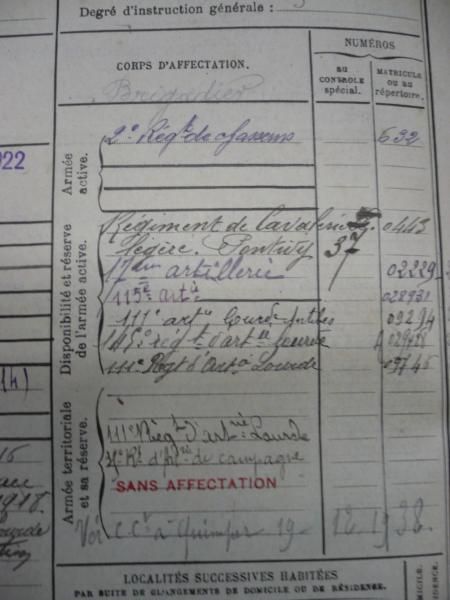 Degré d'instruction générale : 3
NUMÉROS
CORPS D'AFFECTATION.
au
CONTRÔLE
spécial.
MATRICULE
ou au
répertoire.
Brigadier
Armée
active.
2e Régt de chasseurs
632
022
Disponibilité et réserve
de l'armée active.
Régiment de Cavalerie
0443
légère. Pontivy
37
17ème artillerie
02289
115e arte
028931
111e arte lourde Antibes
09294
145e régt d'arte lourde
111e Régt d'Arte Lourde
09745
Armée territoriale
et sa réserve.
111e Régt d'artrie Lourde
Rt d'Arie de campagne
SANS AFFECTATION
1918.
Lourde
Voir C.Cl à Quimper 19 - 12.1938.
LOCALITÉS SUCCESSIVES HABITÉES
PAR SUITE DE CHANGEMENTS DE DOMICILE OU DE RÉSIDENCE.